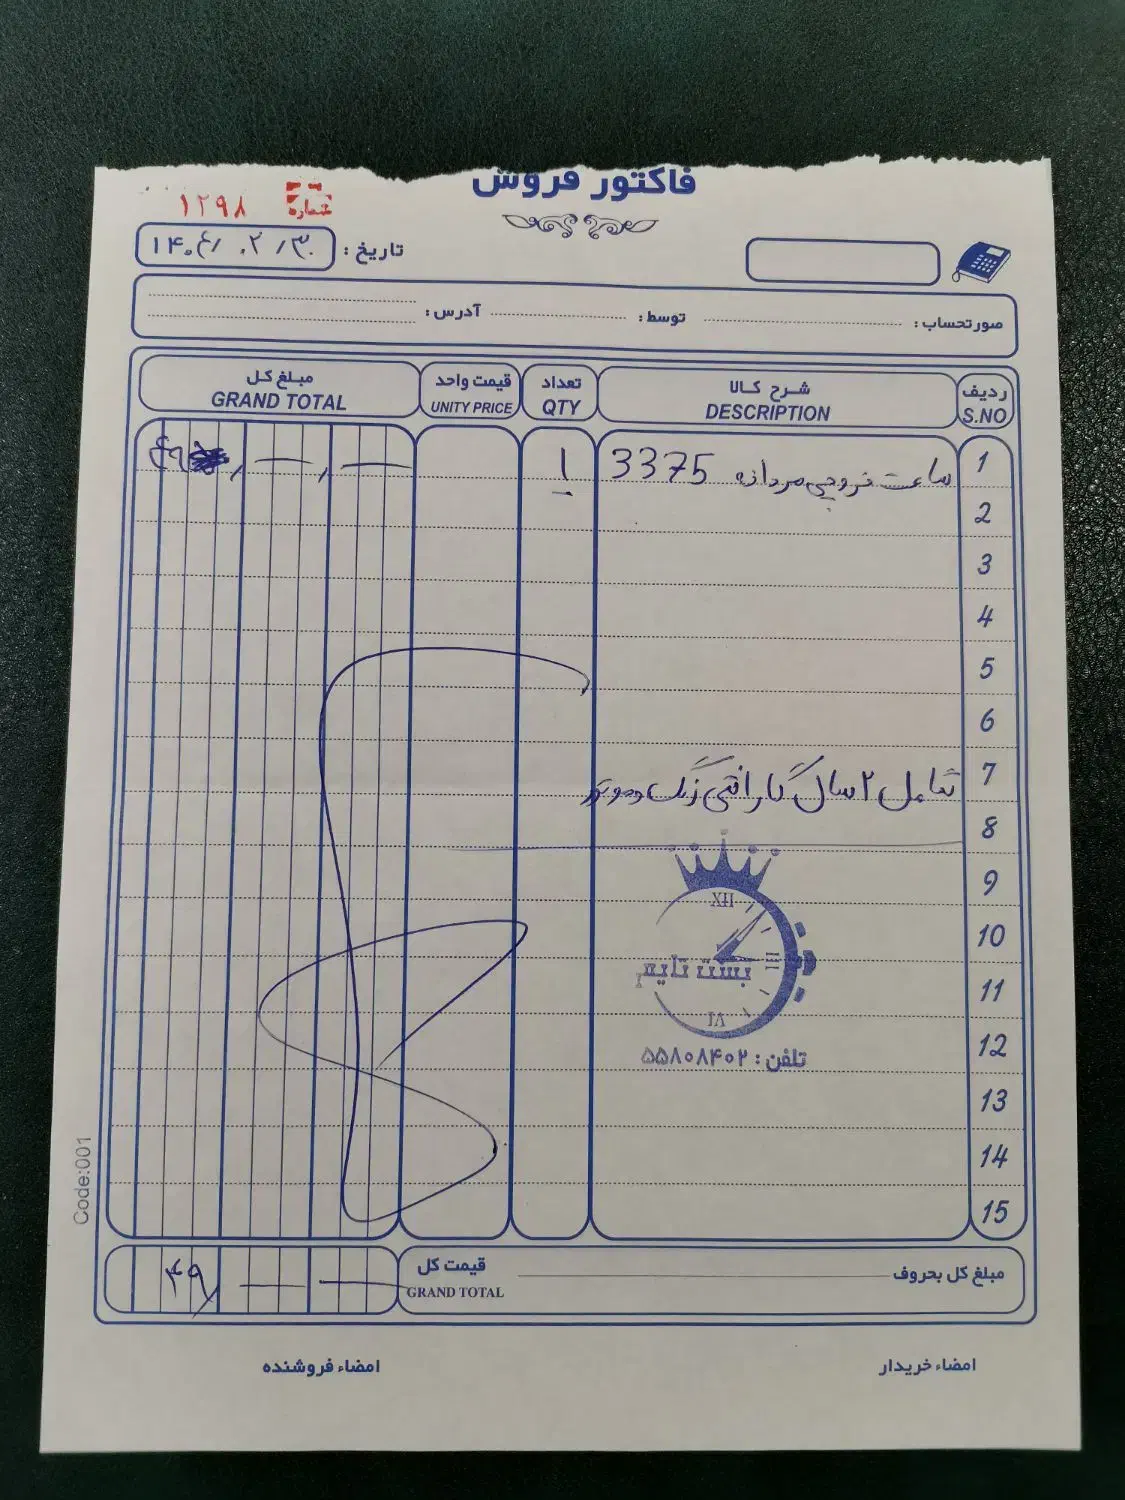 فاکتور فروش
شماره ۱۲۹۸
تاریخ : ۱۴۰۴/۰۲/۳۰
صورتحساب : توسط : آدرس :
ردیف شرح کالا تعداد قیمت واحد مبلغ کل
S.NO DESCRIPTION QTY UNITY PRICE GRAND TOTAL
1 ساعت مردانه 3375 ۱ ۴۹
2
3
4
5
6
7 شامل ۲ سال گارانتی رنگ و موتور
8
9
10
11
12
13
14
15
XII
III
VI
بست تایم
تلفن : ۵۵۸۰۸۴۰۲
مبلغ کل بحروف قیمت کل ۴۹
GRAND TOTAL
امضاء خریدار امضاء فروشنده
Code:001